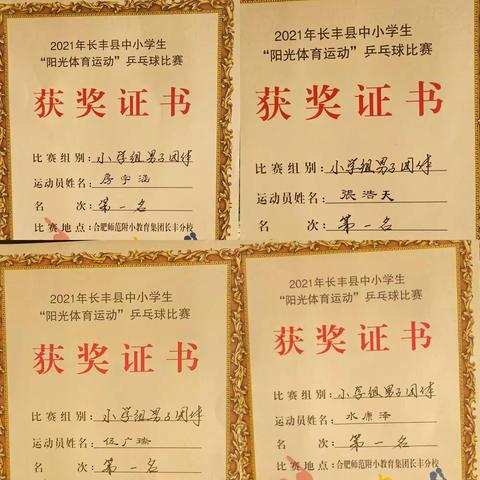 2021年长丰县中小学生
“阳光体育运动”乒乓球比赛
获奖证书
比赛组别:小学组男子团体
运动员姓名:房宇涵
名 次:第一名
比赛地点:合肥师范附小教育集团长丰分校
2021年长丰县中小学生
“阳光体育运动”乒乓球比赛
获奖证书
比赛组别:小学组男子团体
运动员姓名:張浩天
名 次:第一名
2021年长丰县中小学生
“阳光体育运动”乒乓球比赛
获奖证书
比赛组别:小学组男子团体
运动员姓名:伍广瑜
名 次:第一名
2021年长丰县中小学生
“阳光体育运动”乒乓球比赛
获奖证书
比赛组别:小学组男子团体
运动员姓名:水康泽
名 次:第一名
比赛地点:合肥师范附小教育集团长丰分校